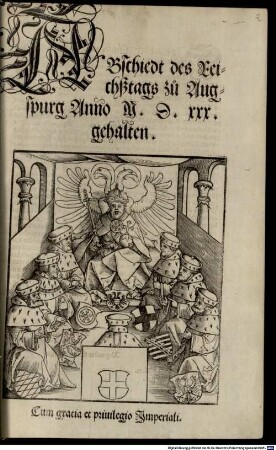 ABschiedt des Rei-
chßtags zů Aug-
spurg Anno M. D. xxx.
gehalten.
Cum gracia et priuilegio Imperiali.